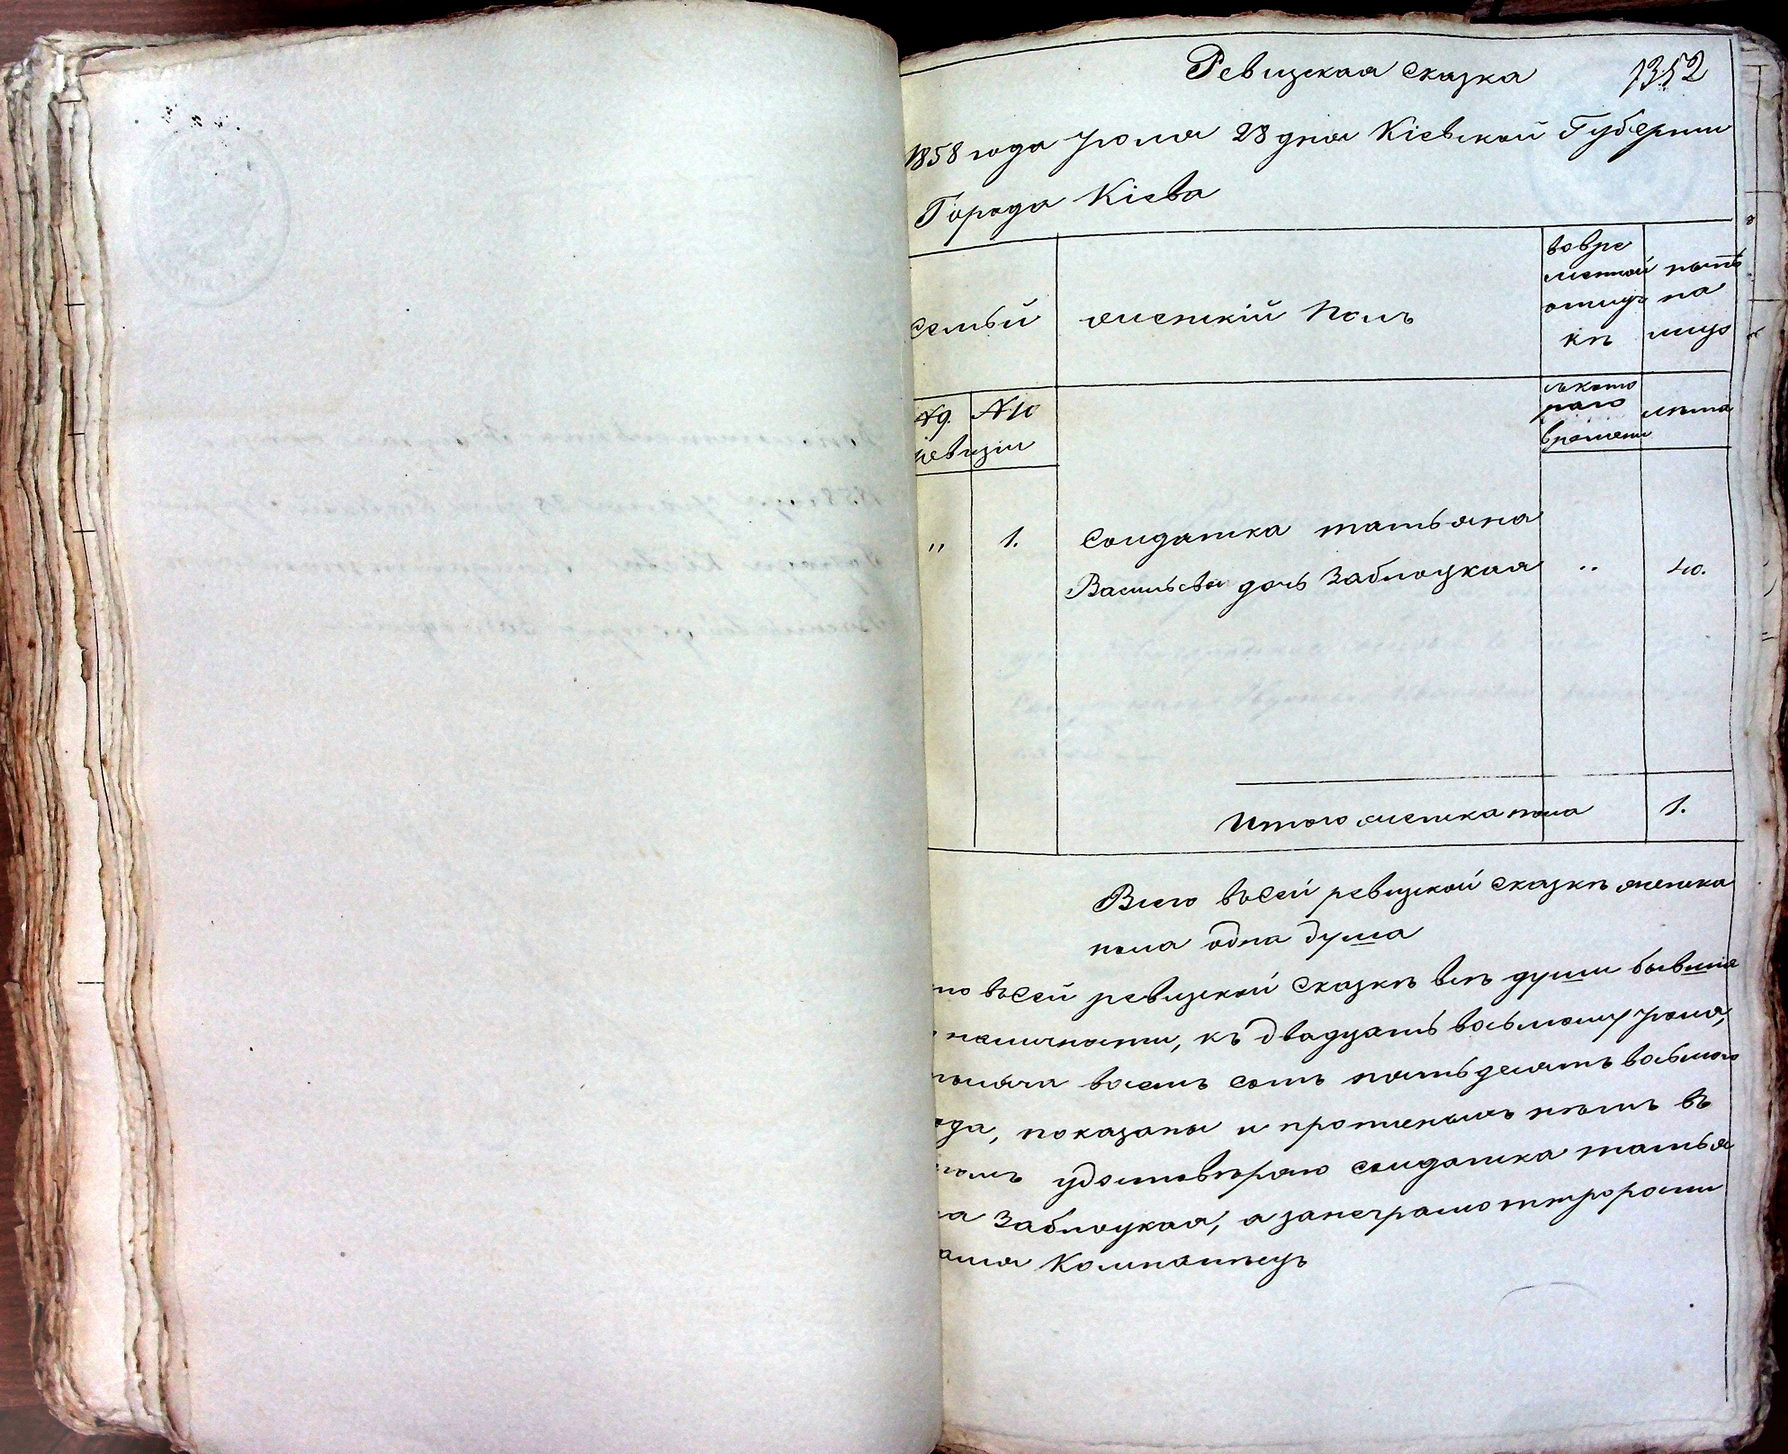 Ревизская сказка 1352
1858 года Июля 28 дня Кіевской Губерніи
Города Кіева
Семьи
женскій Полъ
во вре
менной
отлуч
кѣ
нынѣ
на
лицо
№ 9. № 10
ревизіи
съ кото
раго
времени
лѣта
" 1. Солдатка татьяна
Васильева дочь Заблоцкая " 40.
Итого женска пола 1.
Всего въ сей ревизской сказкѣ женска
пола одна душа
что въ сей ревизской сказкѣ всѣ души бывшія
наличности, къ двадцать восьмому Іюля,
тысяча восемь сотъ пятьдесятъ восьмого
года, показаны и
удостовѣряю солдатка татья
на Заблоцкая, а за неграмотну
Компанѣецъ